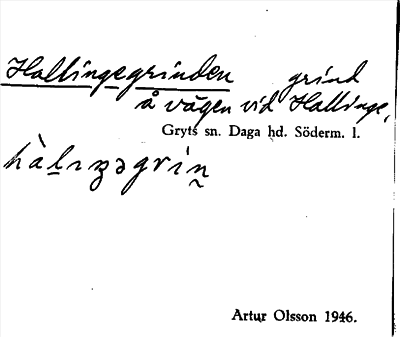 Hallingegrinden grind
å vägen vid Hallinge,
Gryts sn. Daga hd. Söderm. l.
hàlıŋəgrin
Artur Olsson 1946.